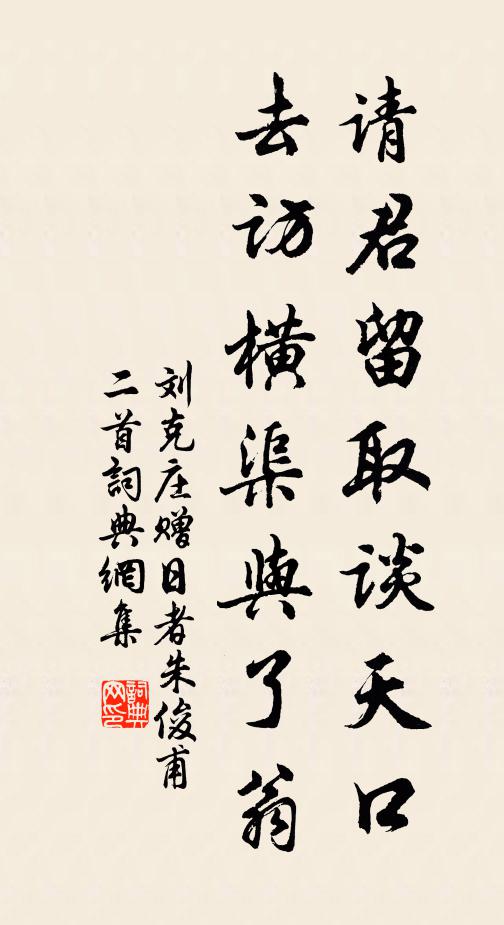 请君留取谈天口
去访横渠與了翁
刘克庄赠日者朱俊甫
二首詞典網集
詞典
网印